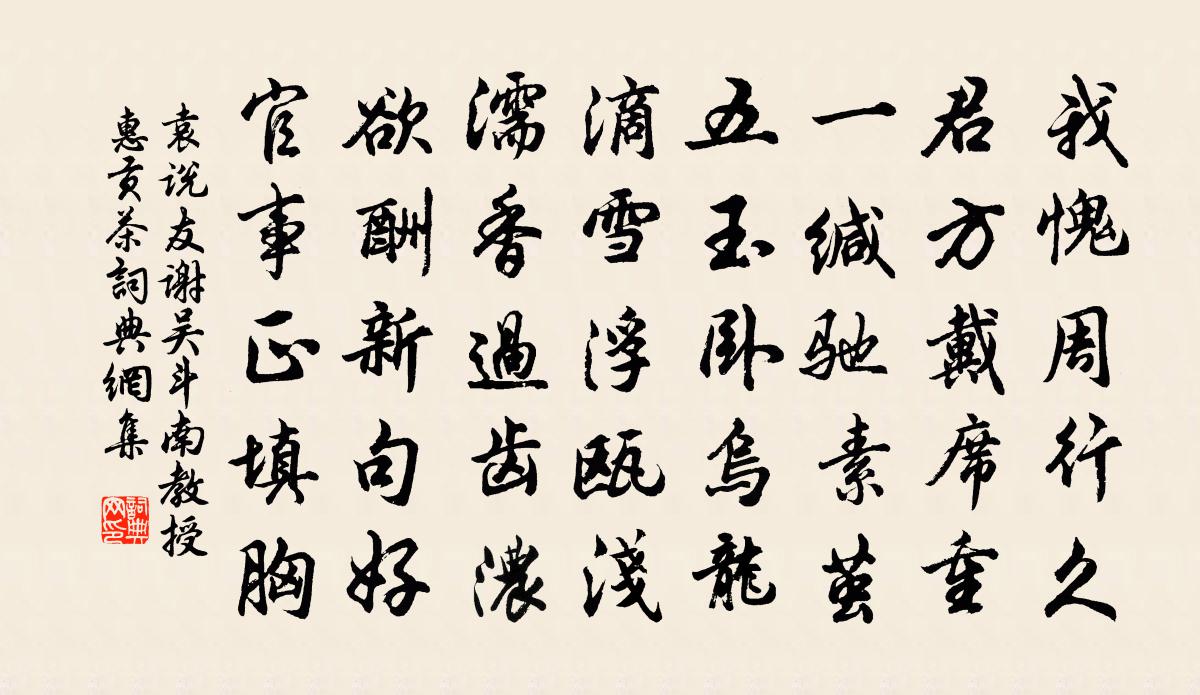 我愧周行久
君方戴席重
一缄驰素茧
五玉卧乌龍
滴雪浮瓯淺
濡香過齿濃
欲酬新句好
官事正填胸
袁说友谢吴斗南教授
惠贡茶詞典網集
詞典
网印